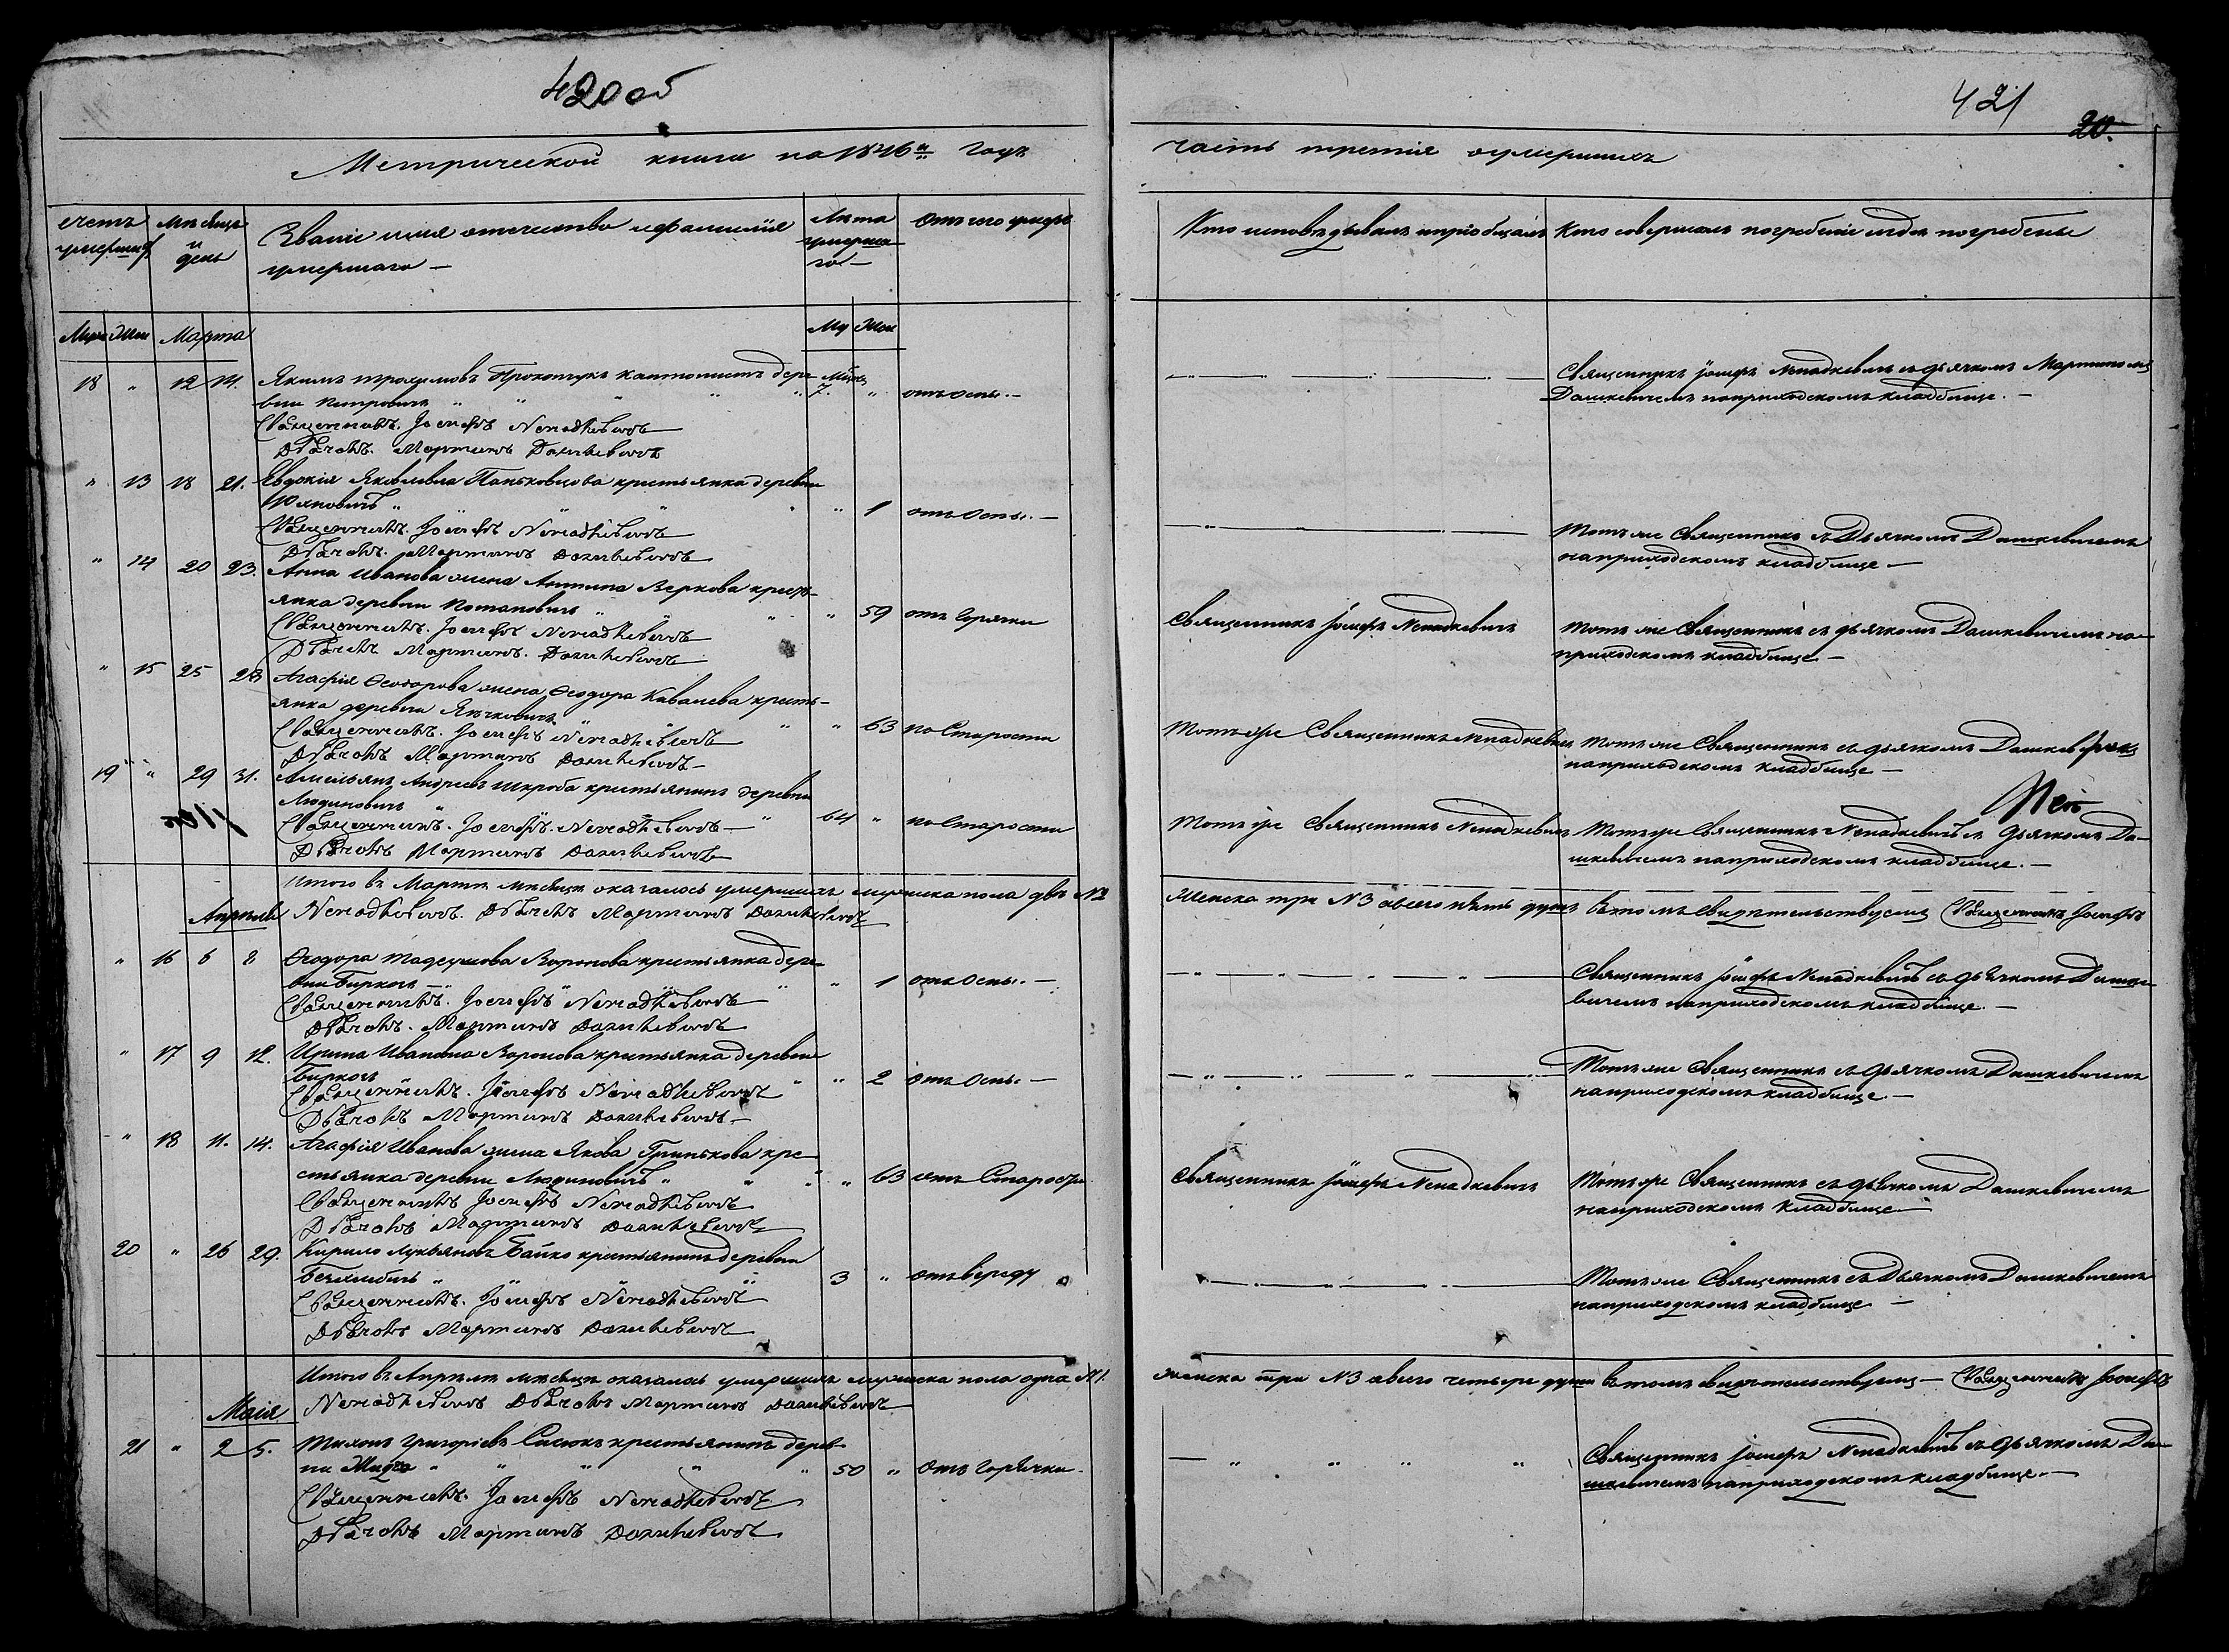 420об
Метрической книги на 1846й годъ
Счетъ умершихъ
Мѣсяцъ и день
Званіе имя отечество и фамилія умершаго —
Лѣта умершаго —
Отъ чего умеръ
Муж Жен Марта
Му Жен
18 " 12 14. Якимъ Трохимовъ Прокопчукъ кантонистъ дере-
вни Петровичъ " " " " 7. мѣсяц " отъ оспы. —
Священникъ. Іосифъ Ненадкевичъ
Дьячокъ. Мартинъ Дашкевичъ
" 13 18 21. Евдокія Яковлева крестьянка деревни
" " " " 1 отъ оспы. —
Священникъ. Іосифъ Ненадкевичъ
Дьячокъ. Мартинъ Дашкевичъ
" 14 20 23. Анна Иванова жена Антипа Веркова кресть-
янка деревни Потаповичъ " " " 59 отъ Горячки
Священникъ. Іосифъ Ненадкевичъ
Дьячокъ Мартинъ. Дашкевичъ
" 15 25 28 Агафія Ѳеодорова жена Ѳеодора Кавалева кресть-
янка деревни " " " 63 по Старости
Священникъ. Іосифъ Ненадкевичъ
Дьячокъ Мартинъ Дашкевичъ —
19 " 29 31. Амельянъ Андреевъ Шкроба крестьянинъ деревни
Людиновичъ " " 64 " по Старости
Священникъ. Іосифъ. Ненадкевичъ —
Дьячокъ Мартинъ Дашкевичъ
Итого въ Мартѣ мѣсяцѣ оказалось умершихъ мужеска пола двѣ №2
Апрѣля Ненадкевичъ. Дьячокъ Мартинъ Дашкевичъ
" 16 6 8 Ѳеодора Тадеушова Воронова крестьянка дере-
вни Бирковъ — " " " 1 отъ оспы. —
Священникъ. Іосифъ Ненадкевичъ
Дьячокъ. Мартинъ Дашкевичъ
" 17 9 12. Ирина Иванова Воронова крестьянка деревни
Бирковъ " " 2 отъ оспы. —
Священникъ. Іосифъ Ненадкевичъ
Дьячокъ Мартинъ Дашкевичъ —
" 18 11. 14. Агафія Иванова жена Якова Гринькова кре-
стьянка деревни Людиновичъ " " " " 63 отъ Старости
Священникъ Іосифъ Ненадкевичъ
Дьячокъ Мартинъ Дашкевичъ
20 " 26 29. Кирило Лукьяновъ Байко крестьянинъ деревни
Бечихлебичъ " 3 " отъ вереду
Священникъ. Іосифъ Ненадкевичъ
Дьячокъ Мартинъ Дашкевичъ
Итого въ Апрѣлѣ мѣсяцѣ оказалось умершихъ мужеска пола одна №1.
Маія Ненадкевичъ Дьячокъ Мартинъ Дашкевичъ
21 " 2 5. Тихонъ Григоріевъ крестьянинъ дерев-
ни " " " " " 50 " Отъ Горячки.
Священникъ. Іосифъ Ненадкевичъ
Дьячокъ Мартинъ Дашкевичъ
421
20.
часть третія оумершихъ
Кто исповѣдывалъ и пріобщалъ
Кто совершалъ погребеніе и гдѣ погребены
Священникъ Іосифъ Ненадкевичъ съ дьячкомъ Мартиномъ
Дашкевичемъ на приходскомъ кладбище. —
Тотъ же Священникъ съ Дьячкомъ Дашкевичемъ
на приходскомъ кладбище —
Священникъ Іосифъ Ненадкевичъ Тотъ же Священникъ съ дьячкомъ Дашкевичемъ на
приходскомъ кладбище —
Тотъ же Священникъ Ненадкевичъ Тотъ же Священникъ съ дьячкомъ Дашкевичемъ
на приходскомъ кладбище —
Тотъ же Священникъ Ненадкевичъ Тотъ же Священникъ Ненадкевичъ съ Дьячкомъ Да-
шкевичемъ на приходскомъ кладбище. —
Женска три №3 а всего пять душъ въ томъ свидѣтельствуемъ Священникъ Іосифъ
Священникъ Іосифъ Ненадкевичъ съ дьячкомъ Дашке-
вичемъ на приходскомъ кладбище. —
Тотъ же Священникъ съ дьячкомъ Дашкевичемъ
на приходскомъ кладбище. —
Священникъ Іосифъ Ненадкевичъ Тотъ же Священникъ съ дьячкомъ Дашкевичемъ
на приходскомъ кладбище —
Тотъ же Священникъ съ Дьячкомъ Дашкевичемъ
на приходскомъ кладбище —
женска три №3 а всего четыре души въ томъ свидѣтельствуемъ — Священникъ Іосифъ
Священникъ Іосифъ Ненадкевичъ съ Дьячкомъ Да-
шкевичемъ на приходскомъ кладбище. —